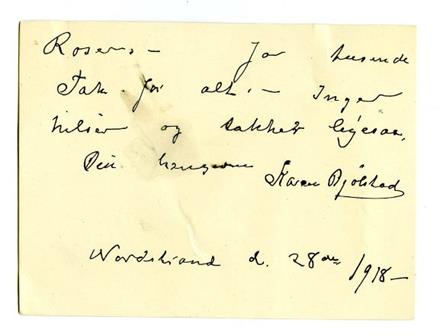 Rosers — Ja tusinde
Tak for alt. — Inger
hilser og takker ligesaa,
Din hengivne Karen Bjølstad
Nordstrand d. 28de 1918 —